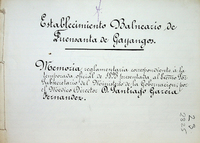 Establecimiento Balneario de
Fuensanta de Gayangos.
Memoria reglamentaria correspondiente á la
temporada oficial de 1878 presentada al Exmo. Sr.
del Ministerio de la Gobernacion, por
el Medico Director D. Santiago Garcia
Fernandez.